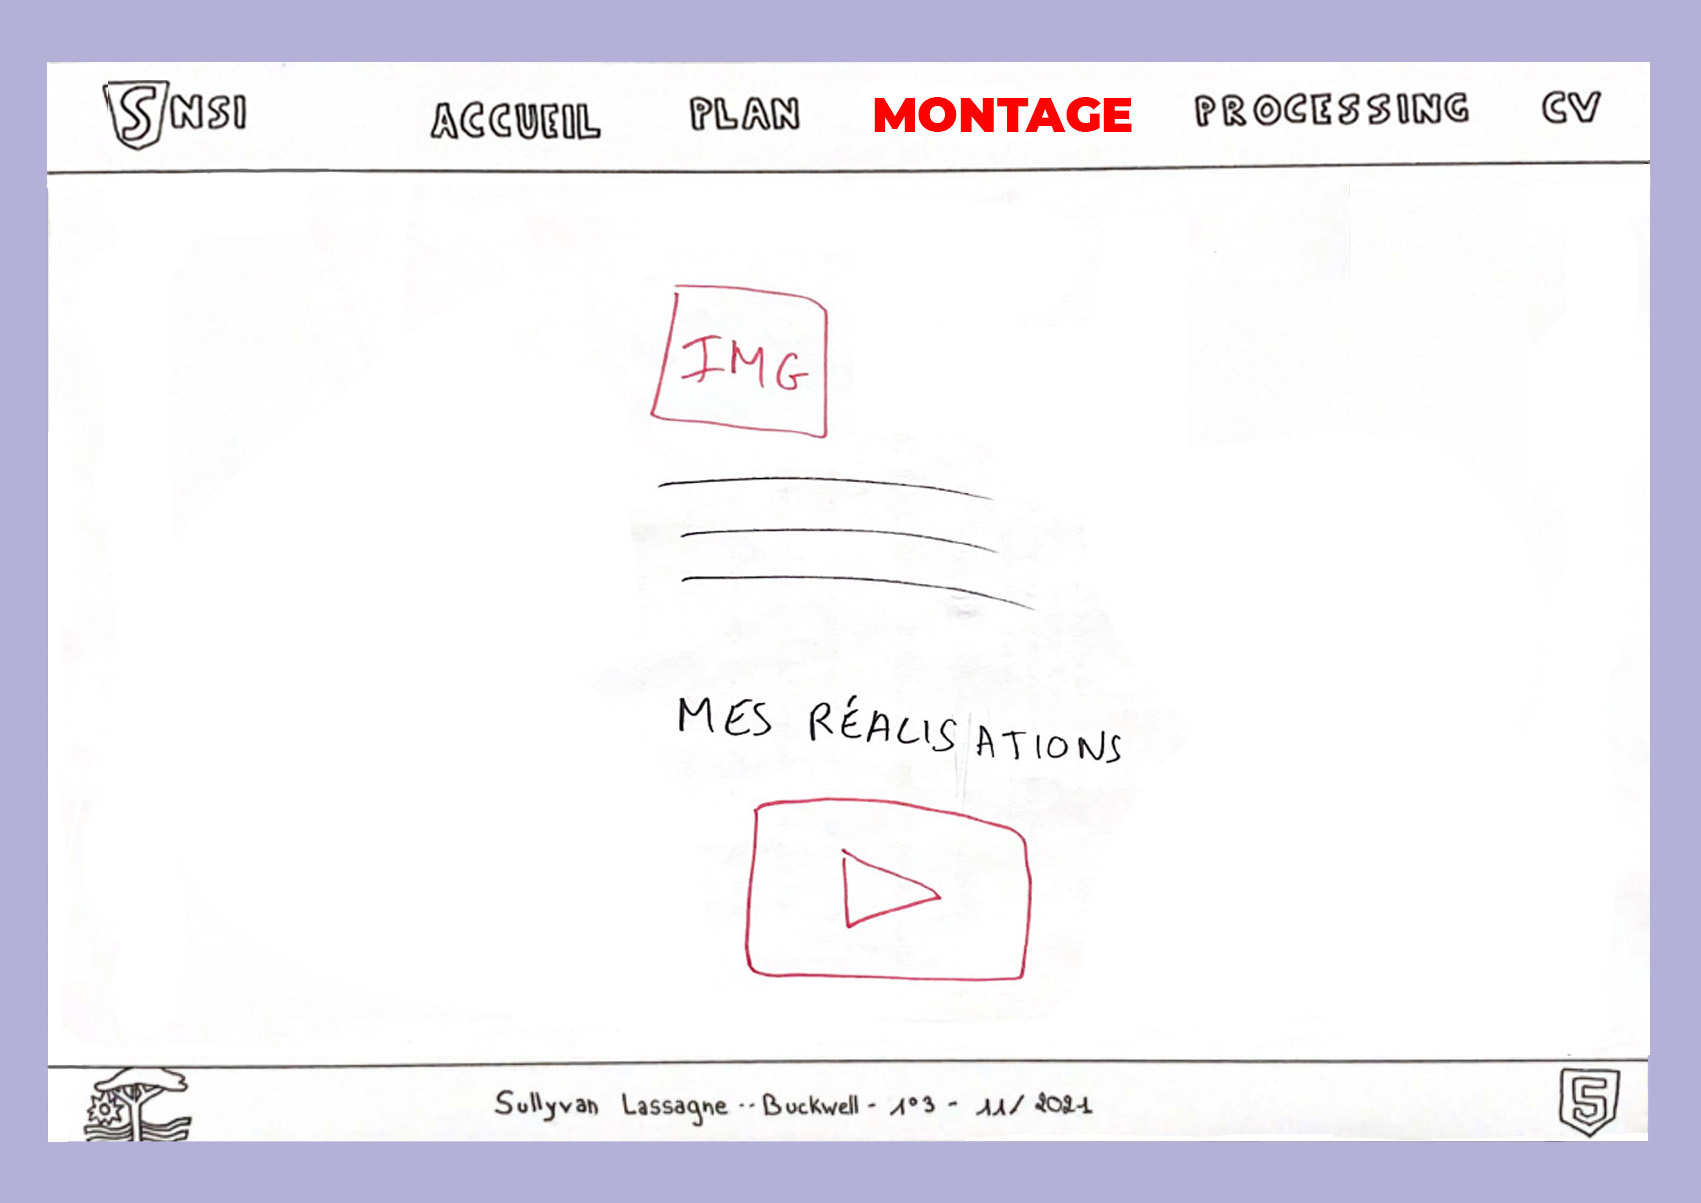 SNSI ACCUEIL PLAN MONTAGE PROCESSING CV
IMG
MES RÉALISATIONS
Sullyvan Lassagne -- Buckwell - 1°3 - 11/2021
5